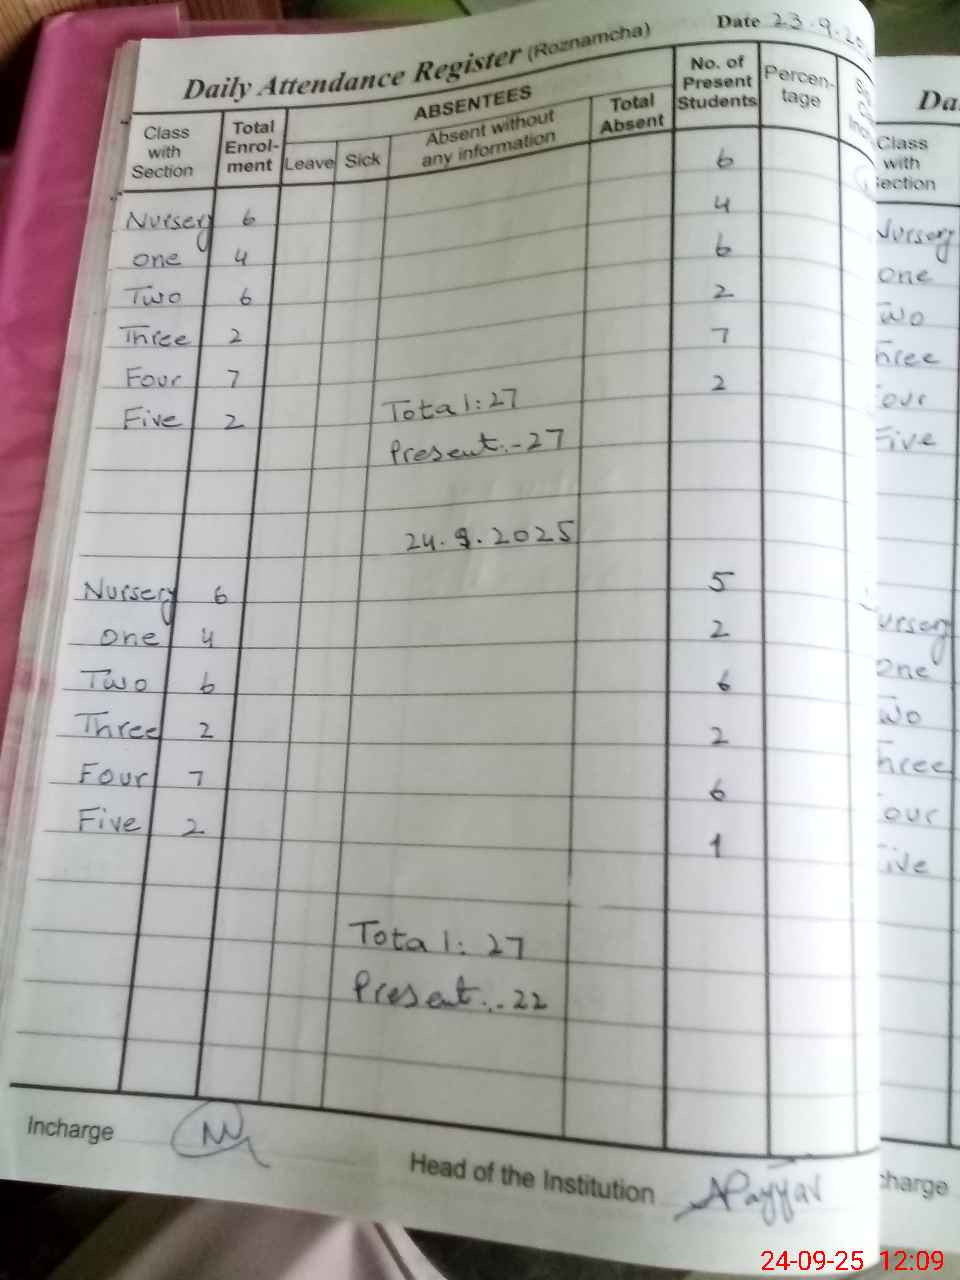 Date 23.9.20
Daily Attendance Register (Roznamcha)
Class with Section | Total Enrol-ment | ABSENTEES | No. of Present Students | Percen-tage
Leave | Sick | Absent without any information | Total Absent
Nursery 6 6
one 4 4
Two 6 6
Three 2 2
Four 7 7
Five 2 2
Total: 27
Present:- 27
24.9.2025
Nursery 6 5
one 4 2
Two 6 6
Three 2 2
Four 7 6
Five 2 1
Total: 27
Present:- 22
Incharge
Head of the Institution
Da
Class
with
ection
Nursery
one
Two
hree
our
Five
ursery
one
wo
hree
our
ive
charge
24-09-25 12:09